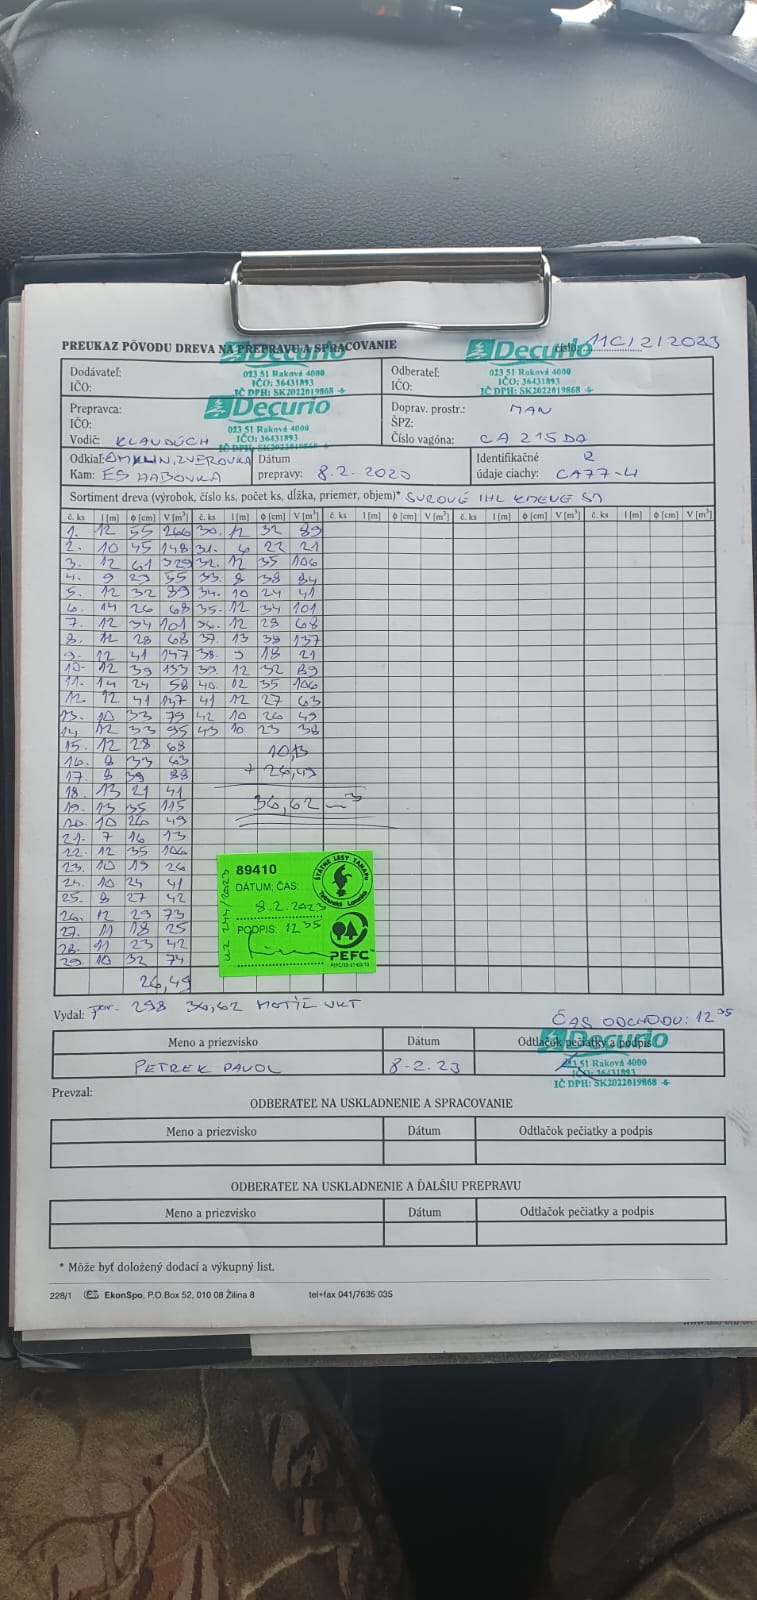 PREUKAZ PÔVODU DREVA NA PREPRAVU A SPRACOVANIE
číslo: 11C/2/2023
Dodávateľ:
Decurio
023 51 Raková 4000
IČO: IČO: 36431893
IČ DPH: SK2022019868 -6-
Odberateľ:
Decurio
023 51 Raková 4000
IČO: IČO: 36431893
IČ DPH: SK2022019868 -6-
Prepravca: Decurio
IČO: 023 51 Raková 4000
IČO: 36431893
Vodič: KLAUDÚCH IČ DPH: SK2022019868
Doprav. prostr.: MAN
ŠPZ:
Číslo vagóna: CA 215 DD
Odkiaľ: ZVEROVKA
Kam: ES HABOVKA
Dátum
prepravy: 8.2.2023
Identifikačné 2
údaje ciachy: CA77-4
Sortiment dreva (výrobok, číslo ks, počet ks, dĺžka, priemer, objem)* SUROVÉ IHL KMENE
č. ks l [m] ϕ [cm] V [m³] č. ks l [m] ϕ [cm] V [m³] č. ks l [m] ϕ [cm] V [m³] č. ks l [m] ϕ [cm] V [m³] č. ks l [m] ϕ [cm] V [m³]
1. 12 55 266 30. 12 32 89
2. 10 45 148 31. 6 22 21
3. 12 61 329 32. 12 35 106
4. 9 29 55 33. 8 38 84
5. 12 32 89 34. 10 24 41
6. 14 26 68 35. 12 34 101
7. 12 34 101 36. 12 28 68
8. 12 28 68 37. 13 39 137
9. 12 41 147 38. 9 18 21
10. 12 39 133 39. 12 32 89
11. 14 24 58 40. 12 35 106
12. 12 41 147 41 12 27 63
13. 10 33 79 42 10 26 49
14 12 33 95 43 10 23 38
15. 12 28 68
16. 8 33 63 10,13
17. 8 39 88 + 26,49
18. 13 21 41
19. 13 35 115 36,62 m³
20. 10 26 49
21. 7 16 13
22. 12 35 106
23. 10 19 26
24. 10 24 41
25. 8 27 42
26. 12 29 73
27. 11 18 25
28. 11 23 42
29 10 32 74
26,49
89410
DÁTUM; ČAS:
8.2.2023
PODPIS: 12 35
ŠTÁTNE LESY TANAPu
Tatranská Lomnica
PEFC
Vydal: por. 298 36,62
ČAS ODCHODU: 12 35
Meno a priezvisko Dátum Odtlačok pečiatky a podpis
PETREK PAVOL 8.2.23
Decurio
023 51 Raková 4000
IČO: 36431893
IČ DPH: SK2022019868 -6-
Prevzal:
ODBERATEĽ NA USKLADNENIE A SPRACOVANIE
Meno a priezvisko Dátum Odtlačok pečiatky a podpis
ODBERATEĽ NA USKLADNENIE A ĎALŠIU PREPRAVU
Meno a priezvisko Dátum Odtlačok pečiatky a podpis
* Môže byť doložený dodací a výkupný list.
228/1 EkonSpo, P.O.Box 52, 010 08 Žilina 8 tel+fax 041/7635 035